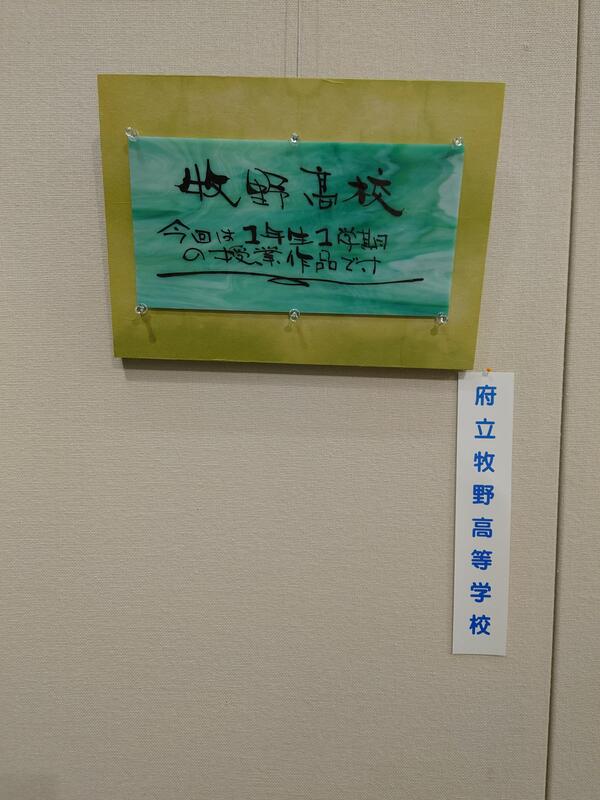 牧野高校
今回は1年生1学期
の授業作品です
府立牧野高等学校